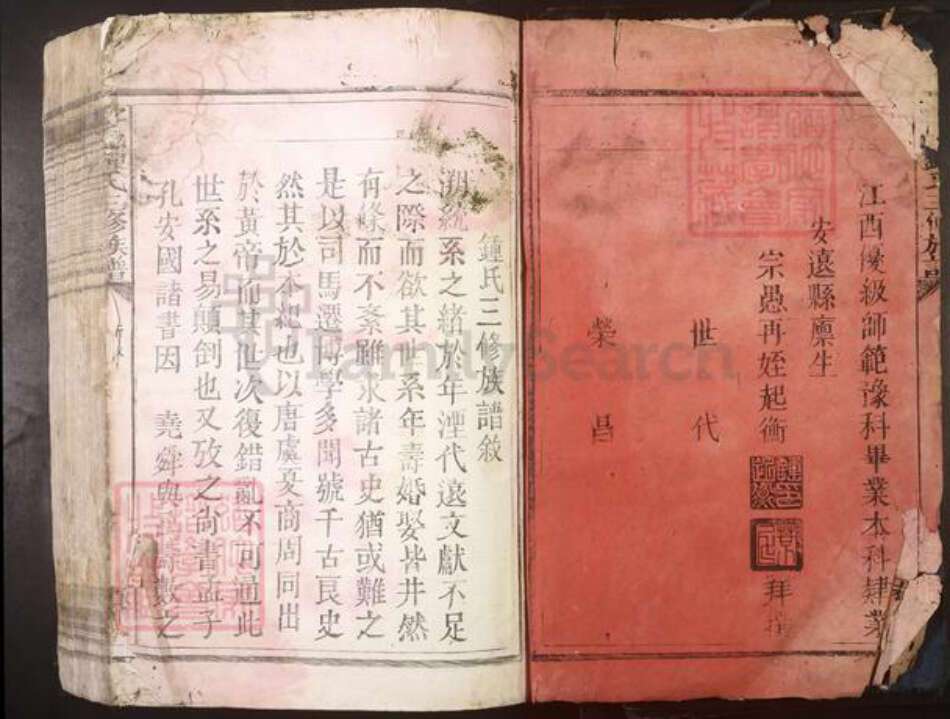 江西優級師範豫科畢業本科肄業
安遠縣廩生
宗愚再姪起衡
拜撰
世代
榮昌
鍾氏三修族譜敘
溯統系之緒於年湮代遠文獻不足
之際而欲其世系年壽婚娶皆井然
有條而不紊雖求諸古史猶或難之
是以司馬遷博學多聞號千古良史
然其於本紀也以唐虞夏商周同出
於黃帝而其世次復錯亂不可通此
世系之易顛倒也又攷之尚書孟子
孔安國諸書因 堯舜與禹壽數之
氏三修族譜
FamilySearch